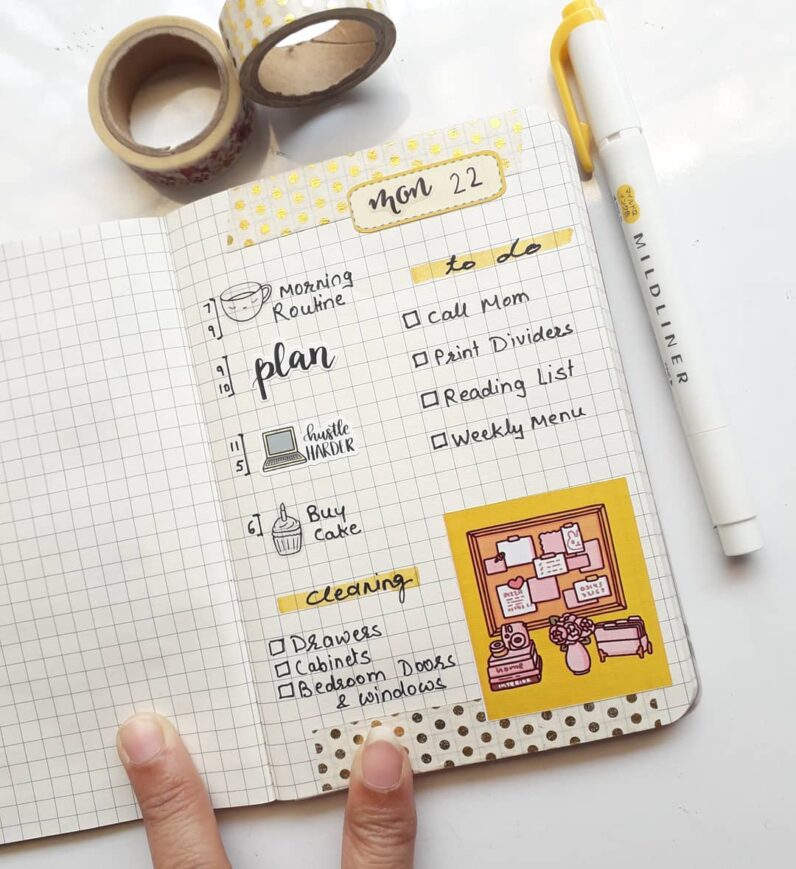 mon 22
7
9
Morning
Routine
9
10
plan
11
5
hustle
HARDER
6
Buy
Cake
cleaning
Drawers
Cabinets
Bedroom Doors
& windows
to do
Call Mom
Print Dividers
Reading List
Weekly Menu
home
INTERIOR
MILDLINER